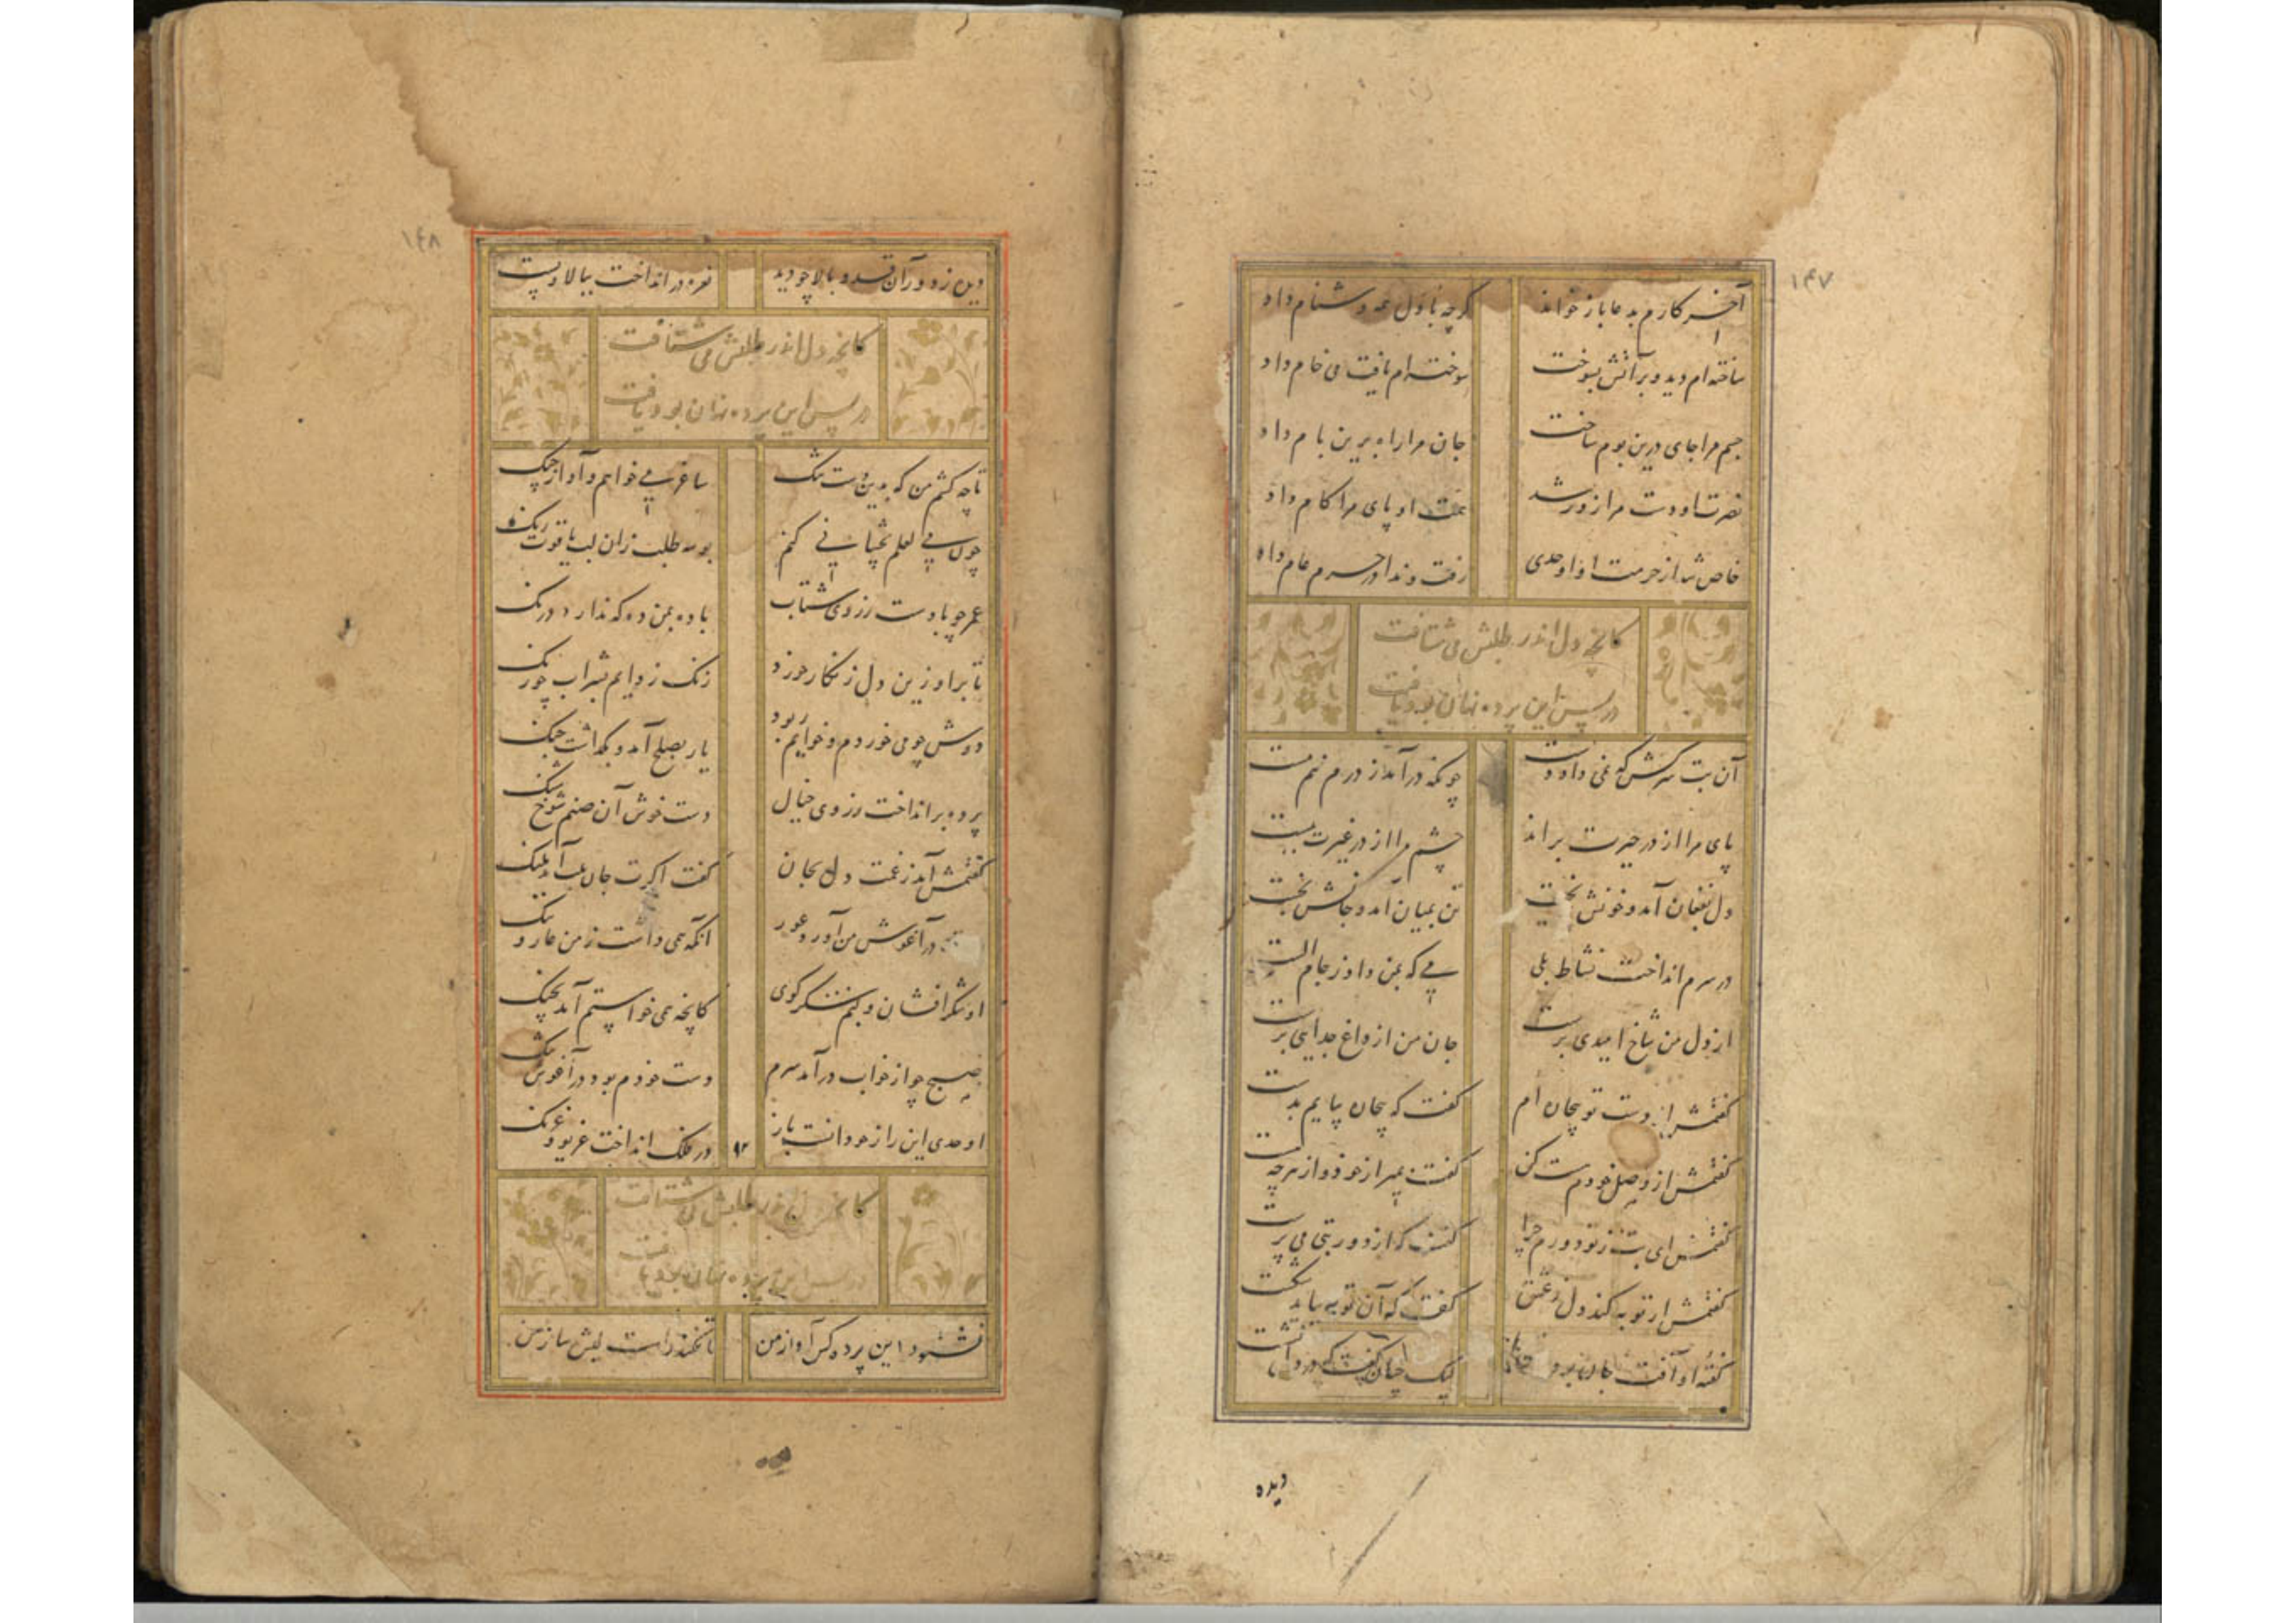 ۱۴۷
آخر کارم بدعا باز خواند گرچه باول همه دشنام داد
ساخته ام دید و بر آتش بسوخت سوخته ام یافت می خام داد
جسم مرا جای درین بوم ساخت جان مرا راه برین بام داد
نصرت او دست مرا زور شد همت او پای مرا کام داد
خاص شد از حرمت او اوحدی رفت و ندا در حرم عام داد
کانچه دل اندر طلبش می شتافت
در پس این پرده نهان بود یافت
آن بت سرکش که غمی داد دست چونکه در آمد ز درم نیم مست
پای مرا از در حیرت براند چشم مرا از در غیرت ببست
دل بفغان آمد و خونش بخت تن بمیان آمد و جانش بخت
در سرم انداخت نشاط بلی می که بمن داد ز جام الست
از دل من شاخ امیدی برست جان من از داغ جدایی برست
گفتمش از دست تو بیجان ام گفت که بیجان پایم بدست
گفتمش از وصل خودم مست کن گفت بمیر از خود و از هرچه هست
گفتمش ای بت ز تو دورم چرا گفت که از دور بتی می پرست
گفتمش ار توبه کند دل ز عشق گفت که آن توبه بباید شکست
گفته او آفت جان بود لیک چنان گفت که در دل نشست
دیده
۱۴۸
دیده ز دور آن قد و بالا چو دید نعره در انداخت ببالا و پست
کانچه دل اندر طلبش می شتافت
در پس این پرده نهان بود یافت
تا چه کشم من که بدین دست تنگ ساغر می خواهم و آواز چنگ
چون می لعلم بچشانی کنم بوسه طلب زان لب یاقوت رنگ
عمر چو بادست ز روی شتاب باده بمن ده که ندارد درنگ
تا برود زین دل زنگار خورد زنگ زدایم بشراب چو رنگ
دوش چو می خوردم و خوابم ربود یار بصلح آمد و بگذاشت جنگ
پرده بر انداخت ز روی خیال دست خوش آن صنم شوخ شنگ
گفتمش آمد ز غمت دل بجان گفت اگرت جان بلب آید بلنگ
در آغوش من آورد عور آنکه همی داشت ز من عار و ننگ
او شکر افشان و منم شکر گوی کانچه همی خواستم آمد بچنگ
صبح چو از خواب در آمد سرم دست خودم بود در آغوش تنگ
اوحدی این راز چو دانست باز ۹۲ در فلک انداخت غریو و غرنگ
کانچه دل اندر طلبش می شتافت
در پس این پرده نهان بود یافت
نشنود این پرده کس آواز من تا نکند راست لبش ساز من